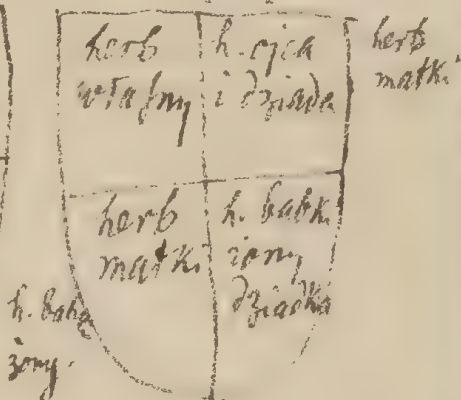 herb
właſny
h. ojca
i dziada
herb
matki
herb
matki
h. babk.
żony
dziadka
h. babą
żony.